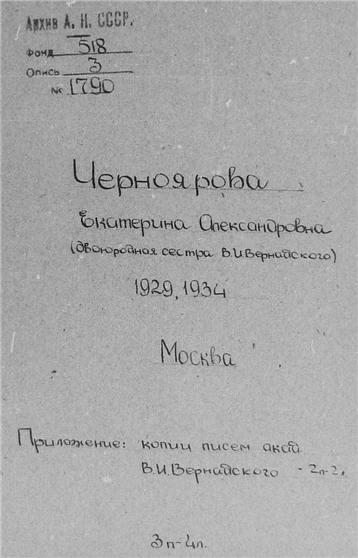 Архив А. Н. СССР.
Фонд 518
Опись 3
№ 1790
Черноярова
Екатерина Александровна
(двоюродная сестра В.И.Вернадского)
1929, 1934
Москва
Приложение: копии писем акад.
В.И.Вернадского - 2п-2л.
3п-4л.